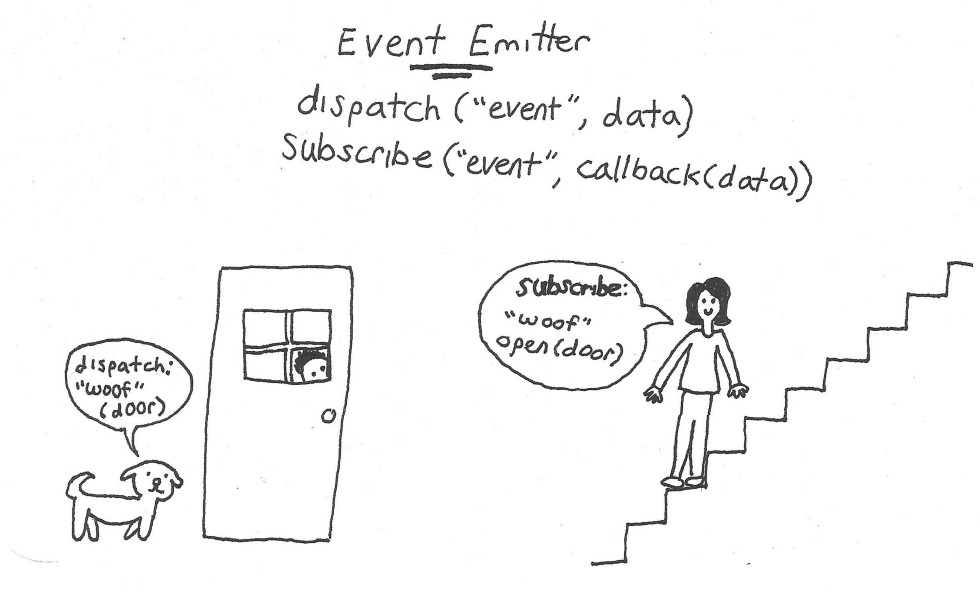 Event Emitter
dispatch ("event", data)
Subscribe ("event", callback(data))
dispatch:
"woof"
(door)
subscribe:
"woof"
open(door)